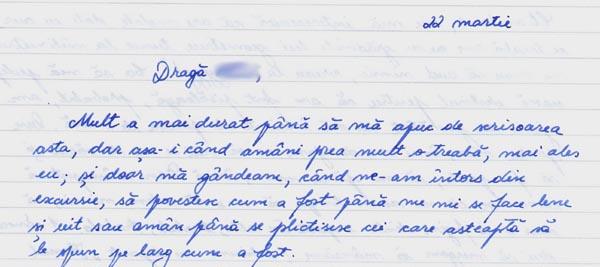 22 martie
Dragă ,
Mult a mai durat până să mă apuc de scrisoarea
asta, dar așa-i când amâni prea mult o treabă, mai ales
eu; și doar mă gândeam, când ne-am întors din
excursie, să povestesc cum a fost până nu mi se face lene
și uit sau amân până se plictisesc cei care așteaptă să
le spun pe larg cum a fost.